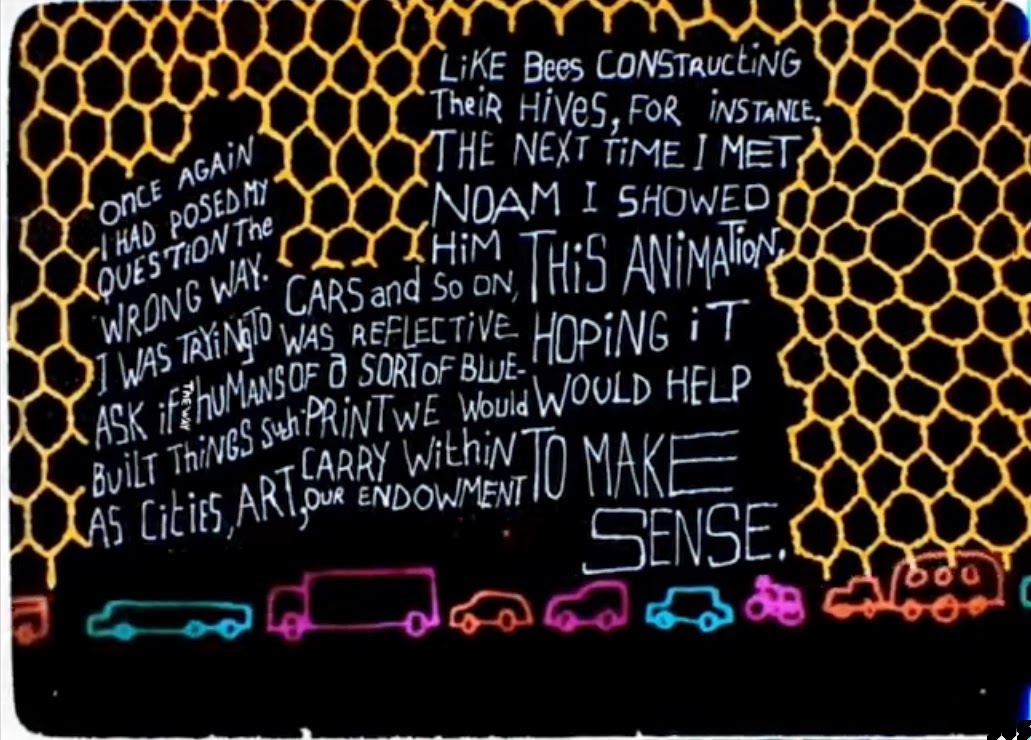 ONCE AGAIN
I HAD POSED MY
QUESTION The
WRONG WAY.
I WAS TRYiNg TO
ASK iF THE WAY hUMANS
BUiLT ThiNGS such
AS CitiEs, ART,
CARS and So ON,
WAS REFLECTiVE
OF a SORT OF BLUE-
PRiNT WE Would
CARRY WithiN
OUR ENDOWMENT
LiKE Bees CONSTRUCtiNG
TheiR HiVES, FOR iNSTANCE.
THE NEXT TiME I MET
NOAM I SHOWED
HiM THiS ANiMATiON,
HOPiNG iT
WOULD HELP
TO MAKE
SENSE.